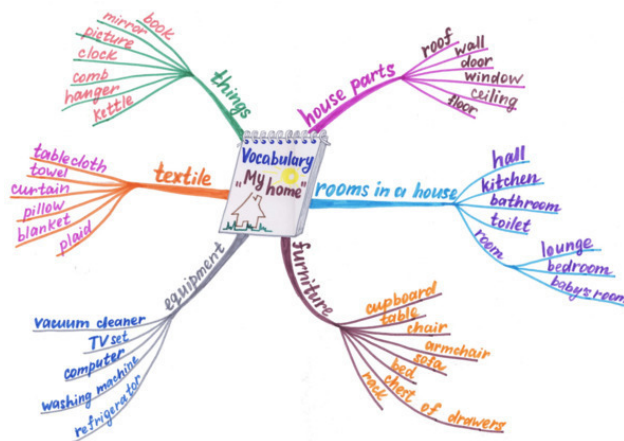 Vocabulary
"My home"
things
book
mirror
picture
clock
comb
hanger
kettle
house parts
roof
wall
door
window
ceiling
floor
textile
tablecloth
towel
curtain
pillow
blanket
plaid
rooms in a house
hall
kitchen
bathroom
toilet
room
lounge
bedroom
baby's room
equipment
vacuum cleaner
TV set
computer
washing machine
refrigerator
furniture
cupboard
table
chair
armchair
sofa
bed
chest of drawers
rack